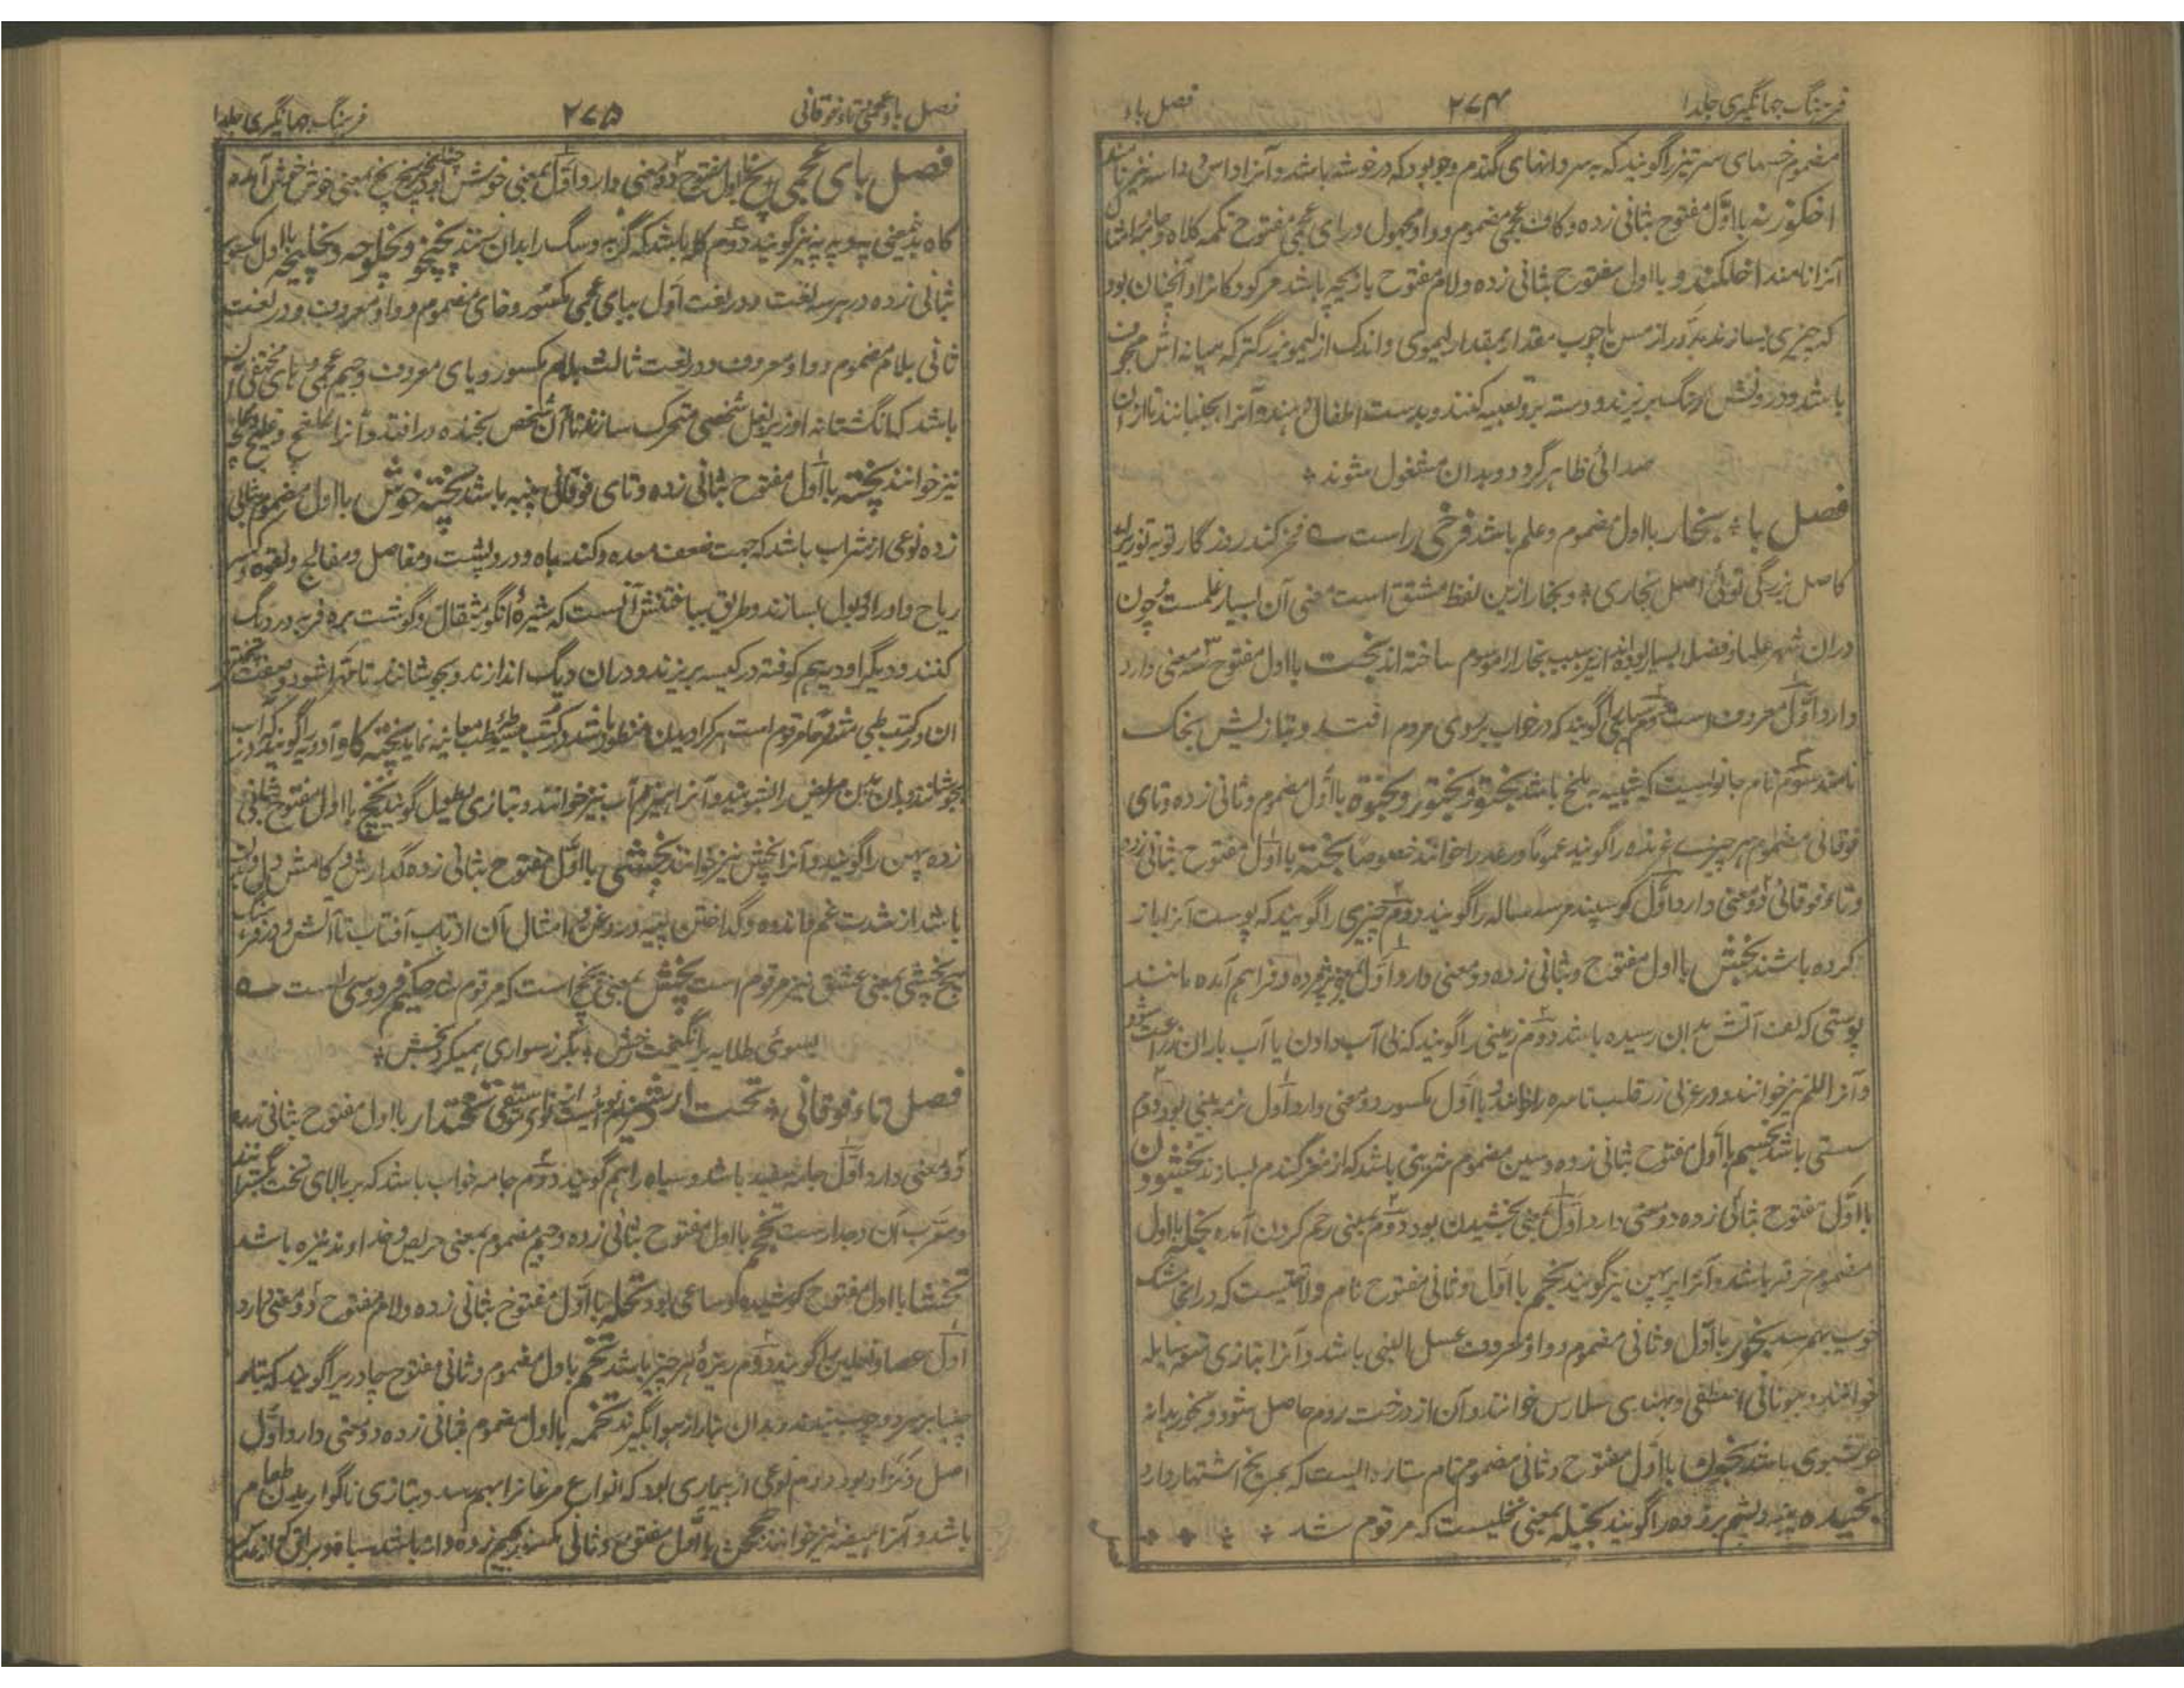 فرهنگ جهانگیری جلد ۱
۲۷۴
فصل باء
مضموم خسهای سر تیز را گویند که بر سر دانهای گندم و جو بود که در خوشه باشد و آنرا داس و داسه نیز نامند
اخکوژنه با اول مفتوح بثانی زده و کاف عجمی مضموم و واو مجهول و رای عجمی مفتوح تکمه کلاه و جامه و امثال
آنرا نامند اخلکندو با اول مفتوح بثانی زده و لام مفتوح بازیچه باشد مر کودکانرا و آنچنان بود
که چیزی بسازند مدور از مس یا چوب مقدار بمقدار لیموی و اندک از لیمو بزرگتر که میانه اش مجوف
باشد و در درونش سنگ بریزند و دسته برو تعبیه کنند و بدست اطفال دهند و آنرا بجنبانند تا از آن
صدائی ظاهر گردد و بدان مشغول شوند
فصل با بخار با اول مضموم و علم باشد فرخی راست فخر کند روزگار تو بتو زیراک
کاصل بزرگی توئی اصل بخاری و بخارا ازین لفظ مشتق است معنی آن بسیار علمست چون
دران شهر علما و فضلا بسیار بوده اند ازین سبب بخارا موسوم ساخته اند بخت با اول مفتوح سه معنی دارد
دارد اول معروف است دوم را گویند که در خواب بر روی مردم افتد و بتازیش
نامند سوم نام جانوریست که شبیه به ملخ باشد بختو و بختور و بختوه با اول مضموم و ثانی زده و تای
فوقانی مضموم هر چیزی غرنده را گویند عموما و رعد را خوانند خصوصا بخته با اول مفتوح بثانی زده
و تاء فوقانی دو معنی دارد اول گوسپند سه ساله را گویند دوم چیزی را گویند که پوست آنرا باز
کرده باشند بخس با اول مفتوح و ثانی زده دو معنی دارد اول پژمرده و فراهم آمده مانند
پوستی که تف آتش بدان رسیده باشد دوم زمینی را گویند که بی آب دادن یا آب باران زراعت شود
و آنرا للم نیز خوانند و در عربی زر قلب ناسره را خوانند و با اول مکسور دو معنی دارد اول نرمه بینی بود دوم
سستی باشد بخسم با اول مفتوح بثانی زده و سین مضموم شربتی باشد که از مغز گندم بسازند بخشودن
با اول مفتوح بثانی زده دو معنی دارد اول بمعنی بخشیدن بود دوم بمعنی رحم کردن آمده بخله با اول
مضموم خرفه باشد و آنرا پرپهن نیز گویند بخم با اول و ثانی مفتوح نام ولایتیست که در آنجا مشک
خوب بهم رسد بخور با اول و ثانی مضموم و واو معروف عسل اللبنی باشد و آنرا بتازی میعه سایله
خوانند و بیونانی اصطفی و بهندی سلارس خوانند و آن از درخت روم حاصل شود و بخور بدانه
خوشبوی باشد با اول مفتوح و ثانی مضموم نام ستاره ایست که بمریخ اشتهار دارد
بخیده پنبه و پشم برزده را گویند بخیله بمعنی بخلیست که مرقوم شد
فصل باء عجمی تاء فوقانی
۲۷۵
فرهنگ جهانگیری جلد ۱
فصل بای عجمی پخ با اول مفتوح دو معنی دارد اول بمعنی خوش آمده چنانچه پخ پخ بمعنی خوش خوش آمده
گاه بدین معنی په و په په نیز گویند دوم کلمه باشد که گربه و سگ را بدان رانند پخپخو و پخلوچه و پخلیچه با اول مکسور
بثانی زده در هر سه لغت و در لغت اول ببای عجمی مکسور و خای مضموم و واو معروف و در لغت
ثانی بلام مضموم و واو معروف و در لغت ثالث بلام مکسور و یای معروف و جیم عجمی و های مختفی آن
باشد که انگشتان او زیر بغل شخصی متحرک سازند تا آن شخص بخنده در افتد و آنرا
نیز خوانند پخته با اول مفتوح بثانی زده و تای فوقانی پنبه باشد پخته جوش با اول مضموم بثانی
زده نوعی از شراب باشد که جهت ضعف معده و کند باه و درد پشت و مفاصل و مفالج و لقوه و کسر
ریاح و ادرار بول بسازند و طریق ساختنش آنست که شیرهٔ انگور مثقال و گوشت بره فربه در دیگ
کنند و دیگر ادویه هم کوفته در کیسه بریزند و دران دیگ اندازند و بجوشانند تا مهرا شود و صفت پختن
آن در کتب طبی مشروحا مرقوم است هر کرا دیدن منظور باشد در کتب مبسوط طب معاینه نماید پخته گاو ادویه را گویند که در آب
بجوشانند و بدان بدن مریض را بشویند و آنرا هیزم آب نیز خوانند و بتازی نطیل گویند پخچ با اول مفتوح بثانی
زده پهن را گویند و آنرا پخش نیز خوانند پخسی با اول مفتوح بثانی زده گدازش و کاهش
باشد از شدت غم و اندوه و گداختن پیه و روغن و امثال آن از تاب آفتاب یا آتش و در فرهنگ
پخشی بمعنی عشق نیز مرقوم است پخش بمعنی پخچ است که مرقوم شد حکیم فردوسی راست
بسوی طلایه برانگیخت رخش بگرز سواری همیکرد پخش
فصل تاء فوقانی تخت اردشیر نام نوائیست از موسیقی تختدار با اول مفتوح بثانی زده
دو معنی دارد اول جامه سفید باشد و سیاه را هم گویند دوم جامه خواب باشد که بر بالای تخت گسترانند
و معرب آن دخدار ست تخجم با اول مفتوح بثانی زده و جیم مضموم بمعنی حریص و خداوند غیره باشد
تخشا با اول مفتوح کوشنده و ساعی بود تخله با اول مفتوح بثانی زده و لام مفتوح دو معنی دارد
اول عصا و نعلین را گویند دوم ریزهٔ هر چیز باشد تخم باول مضموم و ثانی مفتوح چادریرا گویند که نثار
چینان بر سر دو چوب بندند و بدان نثار از هوا بگیرند تخمه با اول مضموم بثانی زده دو معنی دارد اول
اصل و نژاد بود دوم نوعی از بیماری بود که انواع مرغانرا بهم رسد و بتازی ناگوار بدن طعام
باشد و آنرا هیضه نیز خوانند با اول مفتوح و ثانی مکسور زده دانه باشد سیاه و براق